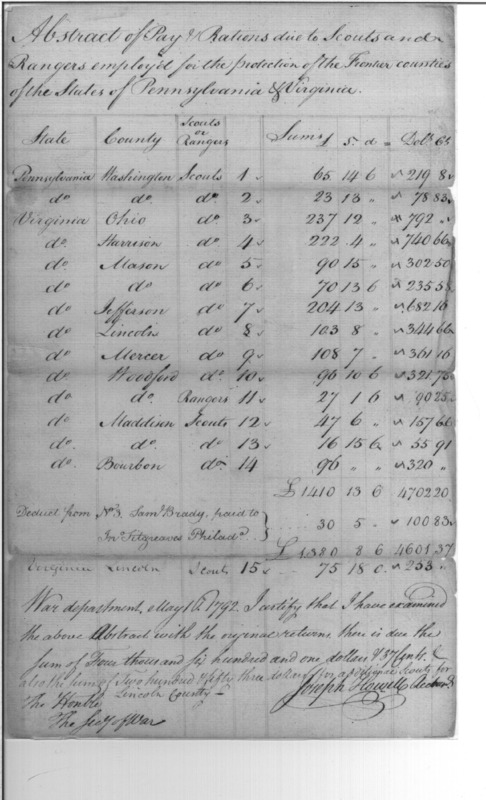 Abstract of Pay & Rations due to Scouts and
Rangers employ'd for the protection of the Frontier counties
of the States of Pennsylvania & Virginia.
State County Scouts or Rangers Sums £ s. d Dolls Cts
Pennsylvania Washington Scouts 1 65 14 6 219 8
do do do 2 23 13 " 78 83
Virginia Ohio do 3 237 12 " 792 "
do. Harrison do 4 222 4 " 740 66
do. Mason do 5 90 15 " 302 50
do do do 6 70 13 6 235 58
do Jefferson do 7 204 13 " 682 16
do Lincoln do 8 103 8 " 344 66
do Mercer do 9 108 7 " 361 16
do Woodford do 10 96 10 6 321 75
do do. Rangers 11 27 1 6 90 25
do Maddison Scouts 12 47 6 " 157 66
do. do. do 13 16 15 6 55 91
do. Bourbon do 14 96 " " 320 "
£ 1410 13 6 4702 20
Deduct from No 3. Saml Brady, paid to
Jno Fitzgreaves Philada. 30 5 " 100 83
£ 1380 8 6 4601.37
Virginia Lincoln Scouts 15 75 18 0 253 "
War department, May 1792. I certify that I have examined
the above Abstract with the original returns, there is due the
sum of Four thousand six hundred and one dollars & 37 Cents, &
also the sum of Two hundred & fifty three dollars for Scouts for
Lincoln County
Joseph Howell
The Honble
The Secy of War